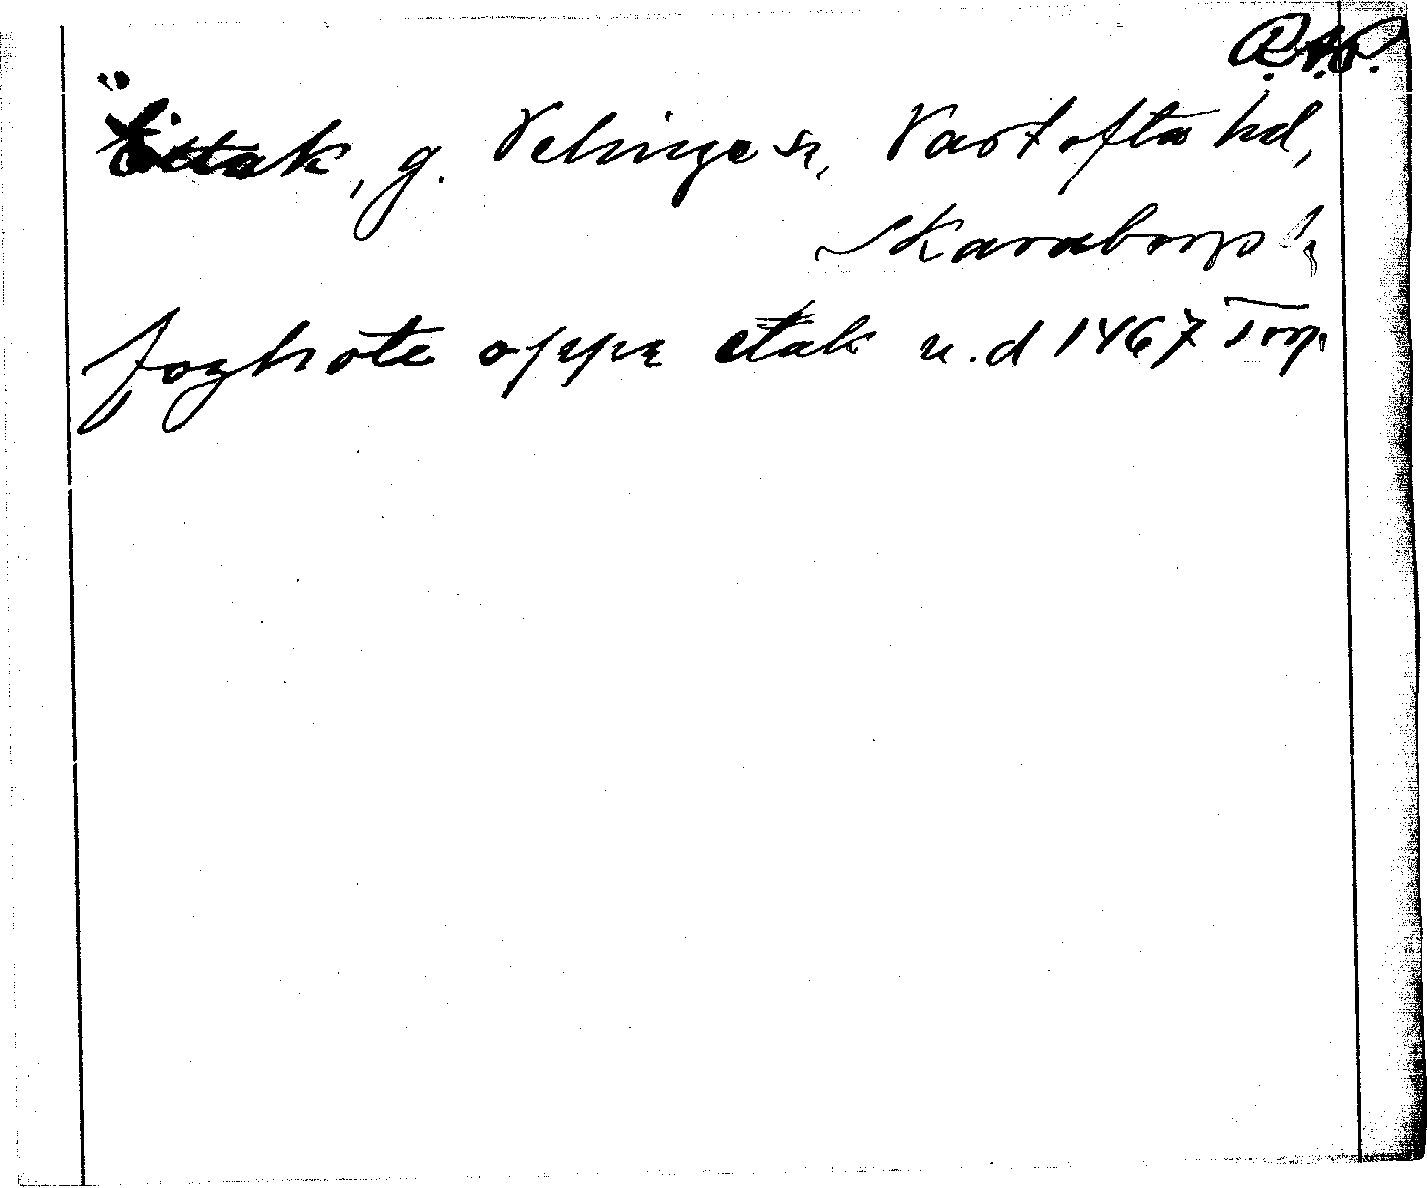 R.A.P.
Ettak, g. Velinge sn, Vartofta hd,
Skaraborgs l.
foghote oppa etak u.d 1467 Torp.